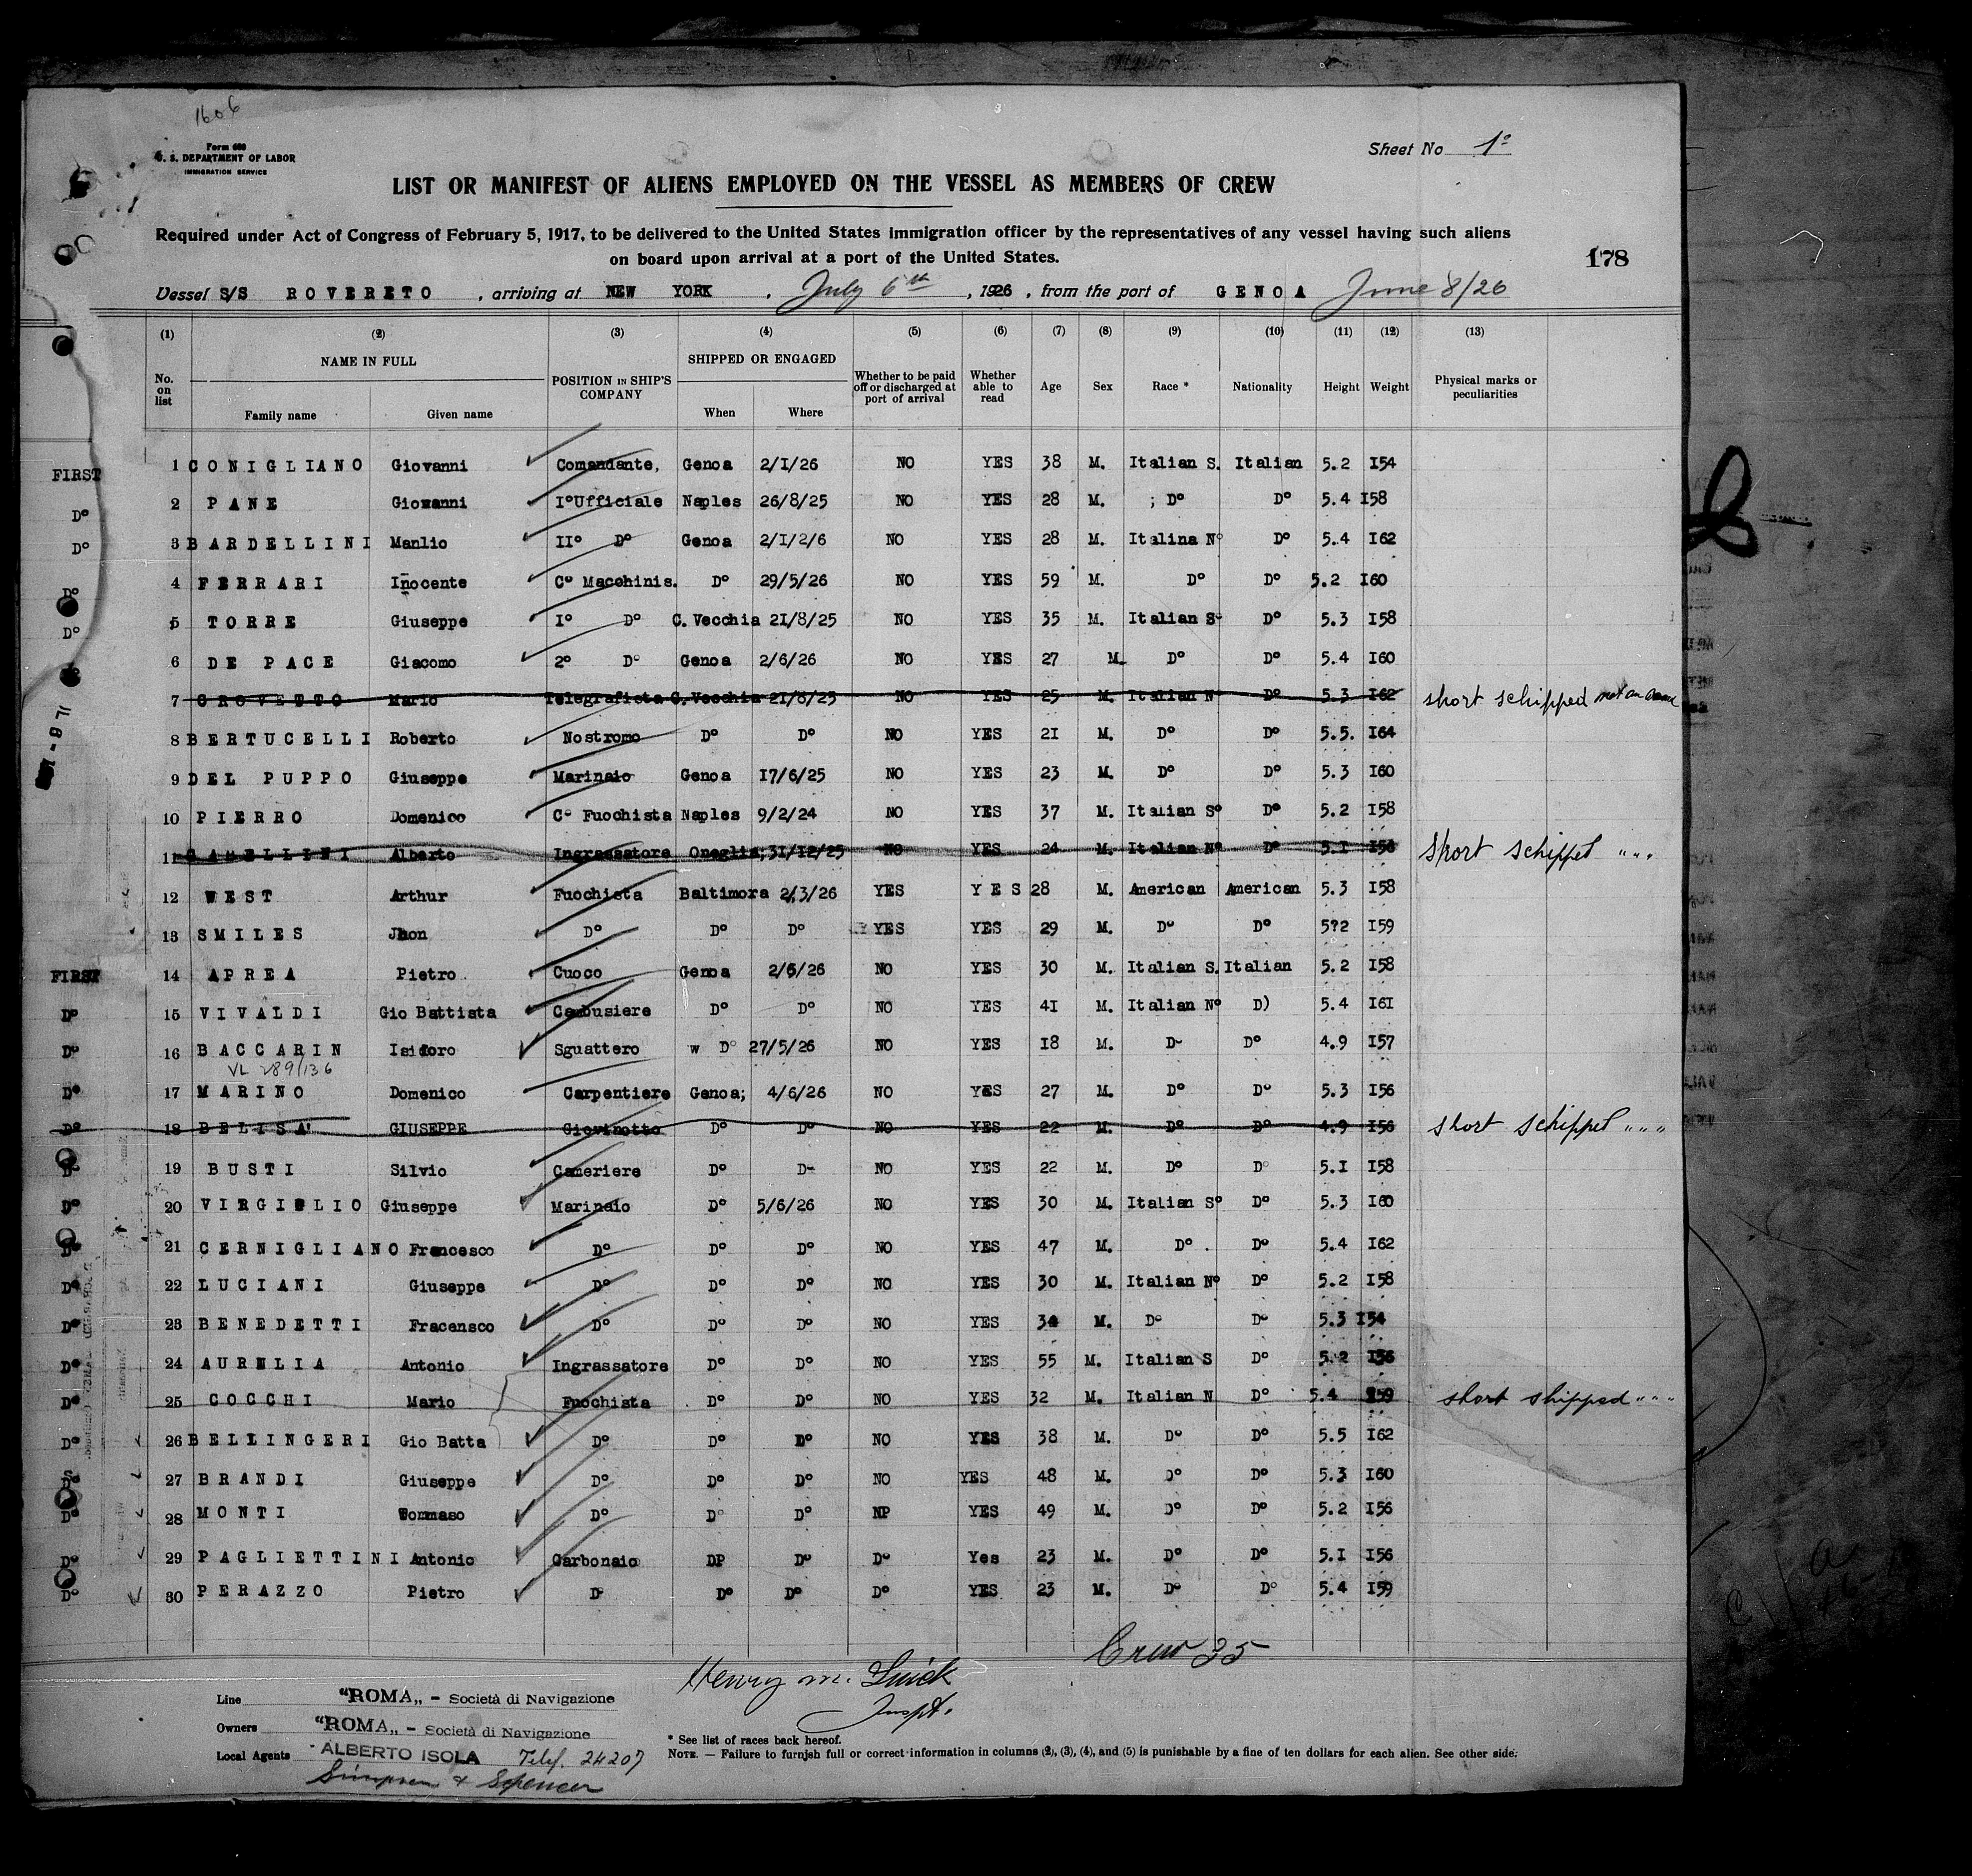 1606
Form 680
U. S. DEPARTMENT OF LABOR
IMMIGRATION SERVICE
Sheet No 1º
LIST OR MANIFEST OF ALIENS EMPLOYED ON THE VESSEL AS MEMBERS OF CREW
Required under Act of Congress of February 5, 1917, to be delivered to the United States immigration officer by the representatives of any vessel having such aliens
on board upon arrival at a port of the United States.
178
Vessel S/S ROVERETO , arriving at NEW YORK , July 6th , 1926 , from the port of GENOA June 8/26
(1) (2) (3) (4) (5) (6) (7) (8) (9) (10) (11) (12) (13)
No. on list NAME IN FULL Family name Given name POSITION IN SHIP'S COMPANY SHIPPED OR ENGAGED When Where Whether to be paid off or discharged at port of arrival Whether able to read Age Sex Race * Nationality Height Weight Physical marks or peculiarities
FIRST 1 CONIGLIANO Giovanni Comandante, Genoa 2/I/26 NO YES 38 M. Italian S. Italian 5.2 I54
Dº 2 PANE Giowanni IºUfficiale Naples 26/8/25 NO YES 28 M. ; Dº Dº 5.4 I58
Dº 3 BARDELLINI Manlio IIº Dº Genoa 2/I/2/6 NO YES 28 M. Italina Nº Dº 5.4 I62
Dº 4 FERRARI Inocente Cº Macchinis. Dº 29/5/26 NO YES 59 M. Dº Dº 5.2 I60
Dº 5 TORRE Giuseppe Iº Dº C. Vecchia 2I/8/25 NO YES 35 M. Italian Sº Dº 5.3 I58
6 DE PACE Giacomo 2º Dº Genoa 2/6/26 NO YES 27 M. Dº Dº 5.4 I60
7 GROVETTO Mario Telegrafista C. Vecchia 2I/8/25 NO YES 25 M. Italian N Dº 5.3 I62 short schipped not on board
8 BERTUCELLI Roberto Nostromo Dº Dº NO YES 2I M. Dº Dº 5.5. I64
9 DEL PUPPO Giuseppe Marinaio Genoa I7/6/25 NO YES 23 M. Dº Dº 5.3 I60
10 PIERRO Domenico Cº Fuochista Naples 9/2/24 NO YES 37 M. Italian Sº Dº 5.2 I58
11 Alberto Ingrassatore Oneglia;3I/I2/25 NO YES 24 M. Italian Nº Dº 5.I I56 short schippet " " "
12 WEST Arthur Fuochista Baltimora 2/3/26 YES YES 28 M. American American 5.3 I58
13 SMILES Jhon Dº Dº Dº YES YES 29 M. Dº Dº 5?2 I59
FIRST 14 APREA Pietro Cuoco Genoa 2/6/26 NO YES 30 M. Italian S. Italian 5.2 I58
Dº 15 VIVALDI Gio Battista Cambusiere Dº Dº NO YES 4I M. Italian Nº D) 5.4 I6I
Dº 16 BACCARIN Isidoro Sguattero w Dº 27/5/26 NO YES I8 M. Dº Dº 4.9 I57
VL 289/136
Dº 17 MARINO Domenico Carpentiere Genoa; 4/6/26 NO YES 27 M. Dº Dº 5.3 I56
Dº 18 BELISA' GIUSEPPE Giovinotto Dº Dº NO YES 22 M. Dº Dº 4.9 I56 short schippet " " "
Dº 19 BUSTI Silvio Cameriere Dº Dº NO YES 22 M. Dº Dº 5.I I58
Dº 20 VIRGIGLIO Giuseppe Marinaio Dº 5/6/26 NO YES 30 M. Italian Sº Dº 5.3 I60
Dº 21 CERNIGLIANO Francesco Dº Dº Dº NO YES 47 M. Dº . Dº 5.4 I62
Dº 22 LUCIANI Giuseppe Dº Dº Dº NO YES 30 M. Italian Nº Dº 5.2 I58
Dº 23 BENEDETTI Fracensco Dº Dº Dº NO YES 34 M. Dº Dº 5.3 I54
Dº 24 AURELIA Antonio Ingrassatore Dº Dº NO YES 55 M. Italian S Dº 5.2 I56
Dº 25 COCCHI Mario Fuochista Dº Dº NO YES 32 M. Italian N Dº 5.4 I59 short shipped " " "
Dº 26 BELLINGERI Gio Batta Dº Dº Dº NO YES 38 M. Dº Dº 5.5 I62
Dº 27 BRANDI Giuseppe Dº Dº Dº NO YES 48 M. Dº Dº 5.3 I60
Dº 28 MONTI Tommaso Dº Dº Dº NP YES 49 M. Dº Dº 5.2 I56
Dº 29 PAGLIETTINI Antonio Carbonaio DP Dº Dº Yes 23 M. Dº Dº 5.I I56
Dº 30 PERAZZO Pietro Dº Dº Dº Dº YES 23 M. Dº Dº 5.4 I59
Crew 35
Henry M.
Inspt.
Line "ROMA„ - Società di Navigazione
Owners "ROMA„ - Società di Navigazione
Local Agents ALBERTO ISOLA Telef. 24207
Simpson & Spencer
* See list of races back hereof.
NOTE. — Failure to furnish full or correct information in columns (2), (3), (4), and (5) is punishable by a fine of ten dollars for each alien. See other side.